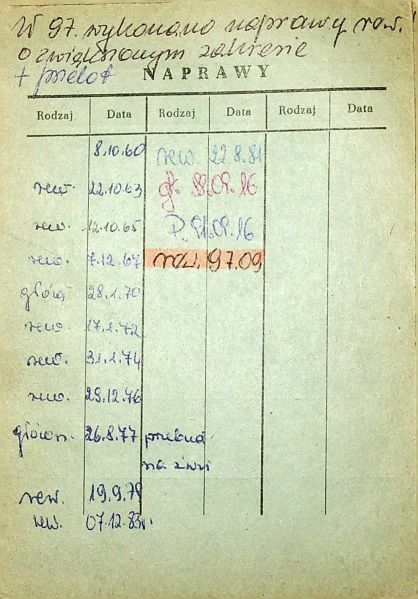 W 97. wykonano naprawy rew.
o zwiększonym zakresie
+ przelot
NAPRAWY
Rodzaj Data Rodzaj Data Rodzaj Data
8.10.60 rew. 22.8.81
rew. 22.10.63 gł. 88.09.16
rew. 12.10.65 P. 91.09.16
rew. 7.12.67 rew. 97.09
główn 28.1.70
rew. 17.1.72
rew. 31.1.74
rew. 29.12.76
główn. 26.8.77
na
rew. 19.9.79
rew. 07.12.83r.